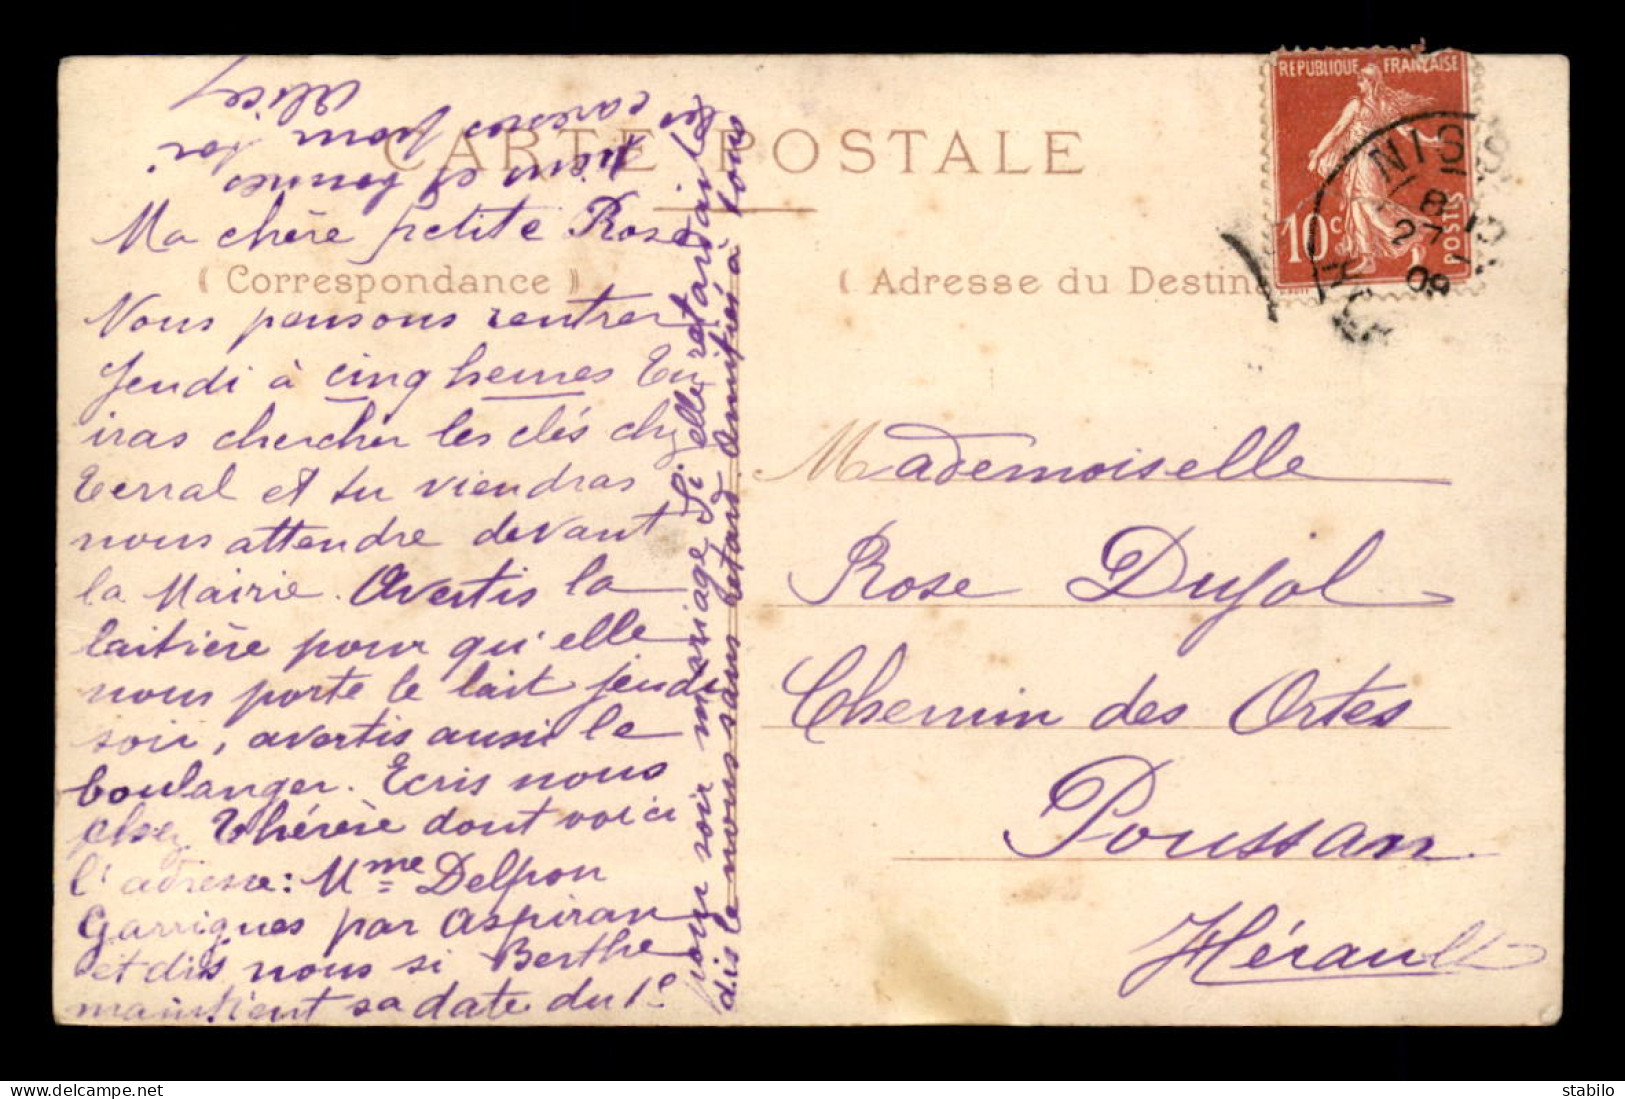 CARTE POSTALE
( Correspondance )
( Adresse du Destina
REPUBLIQUE FRANÇAISE
10c
POSTES
NISS
8
27
09
Ma chère petite Rose,
Nous pensons rentrer
Jeudi à cinq heures Tu
iras chercher les clés chz
Terral et tu viendras
nous attendre devant
la Mairie. Avertis la
laitière pour qu'elle
nous porte le lait jeudi
soir, avertis aussi le
boulanger. Ecris nous
chez Thérèse dont voici
l'adresse: Mme Delpon
Garrigues par Aspiran
et dis nous si Berthe
maintient sa date du 1e
pour soir mariage Si elle retardait le
dis le nous sans retard Amitiés à tous
les
tiens et bonnes
caresses pour toi
Alice
Mademoiselle
Rose Dujol
Chemin des Ortes
Poussan
Hérault
stabilo